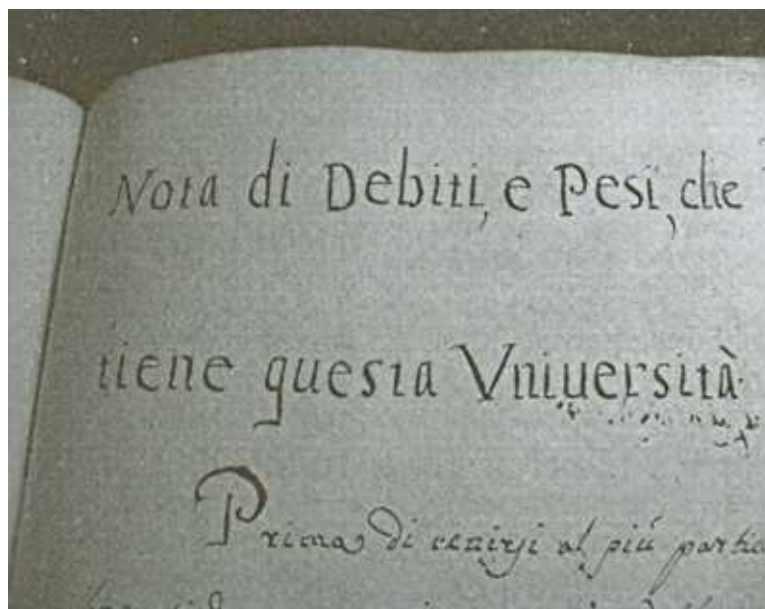 Nota di Debiti, e Pesi, che
tiene questa Vniuersità
Prima di al più